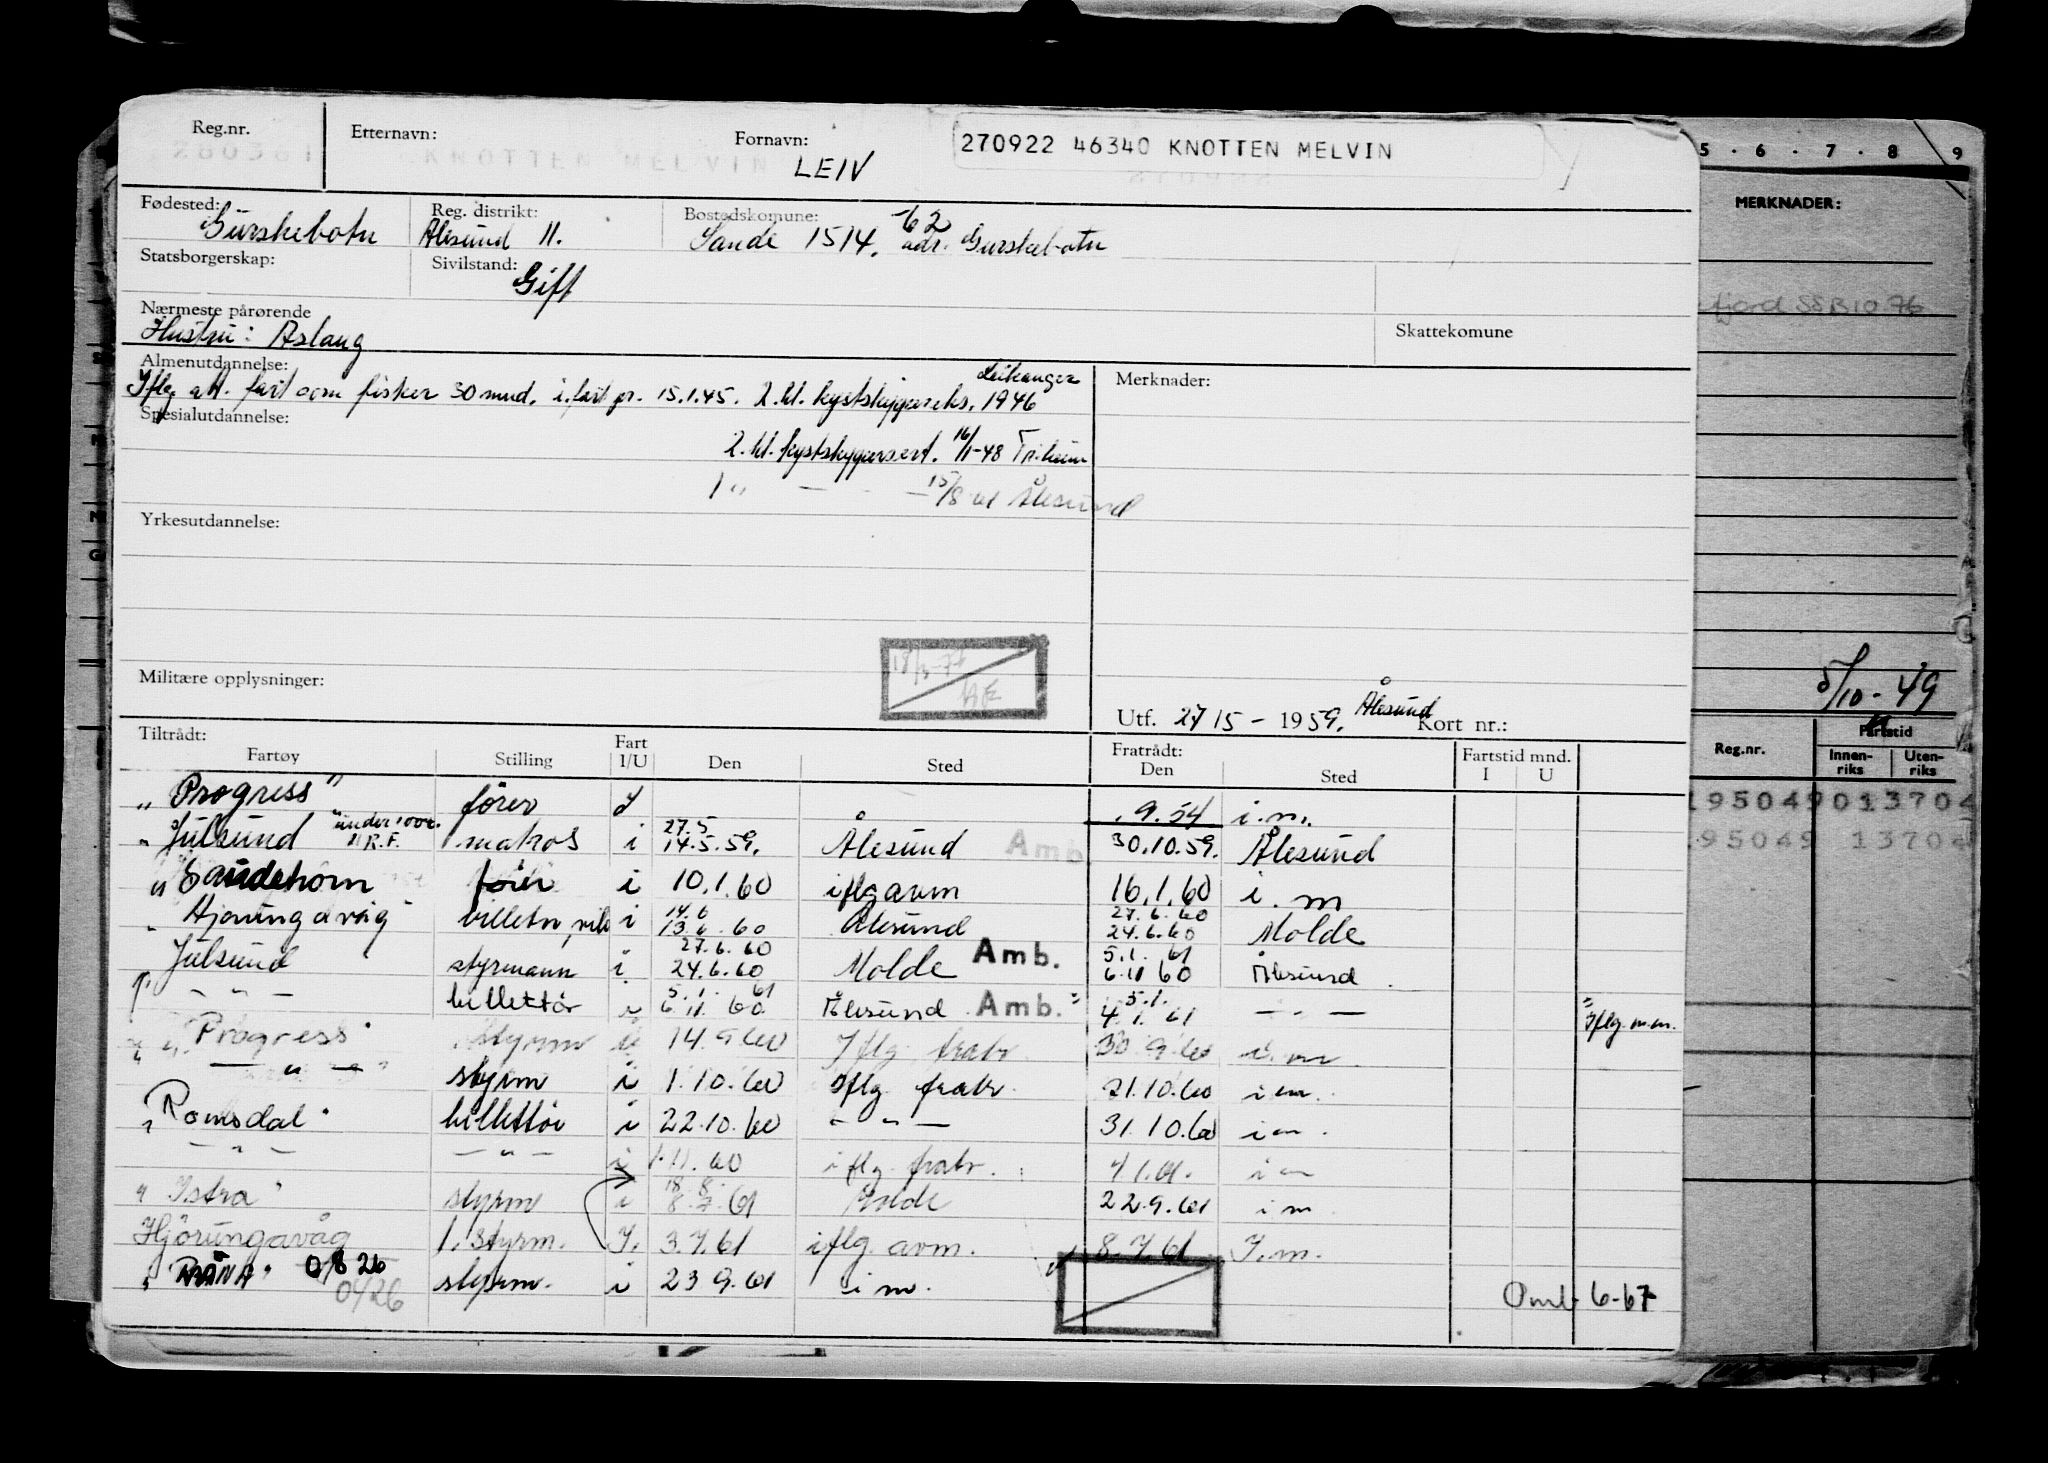 Reg.nr. Etternavn: Fornavn: 270922 46340 KNOTTEN MELVIN
KNOTTEN MELVIN LEIV
Fødested: Gurskebotn Reg. distrikt: Ålesund 11. Bostedskomune: Sande 1514. -62 adr. Gurskebotn
Statsborgerskap: Sivilstand: Gift
Nærmeste pårørende Skattekomune
Hustru: Aslaug
Almenutdannelse: Leikanger Merknader:
Iflg. att. fart som fisker 30 mnd. i. fart pr. 15.1.45. 2. kl. kystskippereks. 1946
Spesialutdannelse:
2. kl. kystskippersert. 16/1-48 Tr.heim
1 " — 15/8 Ålesund
Yrkesutdannelse:
Militære opplysninger:
Utf. 27/5 - 1959. Ålesund Kort nr.:
Tiltrådt: Fratrådt: Fartstid mnd.
Fartøy Stilling Fart I/U Den Sted Den Sted I U
"Progress" fører I .9.54 i.m.
"Julsund" under 100 R.F. matros i 27.5 14.5.59. Ålesund Amb. 30.10.59. Ålesund
"Sandehorn fører i 10.1.60 iflg avm 16.1.60 i.m
"Hjørungavåg" i 14.6 13.6.60 Ålesund 27.6.60 24.6.60 Molde
Julsund styrmann i 27.6.60 24.6.60 Molde Amb. 5.1.61 6.11.60 Ålesund
— " — billettør i 5.1.61 6.11.60 Ålesund Amb." 5.1. 4.1.61 — " — Iflg. m.m.
"Progress" styrm i 14.9.60 Iflg. fratr. 30.9.60 i.m
— " — styrm i 1.10.60 Iflg fratr. 21.10.60 i m.
"Romsdal" billettør i 22.10.60 — " — 31.10.60 i m.
— " — — " — i 1.11.60 iflg. fratr. 4.1.61. i m
"Istra" styrm i 18.8. 8.7.61 Molde 22.9.61 i m
Hjørungavåg 1. Styrm. I. 3.7.61 iflg. avm. 8.7.61 I.m.
"RANA" 0826 styrm. i 23 9.61 i m.
0426
Omb 6-67
5 · 6 · 7 · 8 9
MERKNADER:
fjord SSB 10 76
5/10-49
Reg.nr. Fartstid
Innen-riks Uten-riks
195049013704
195049 13704